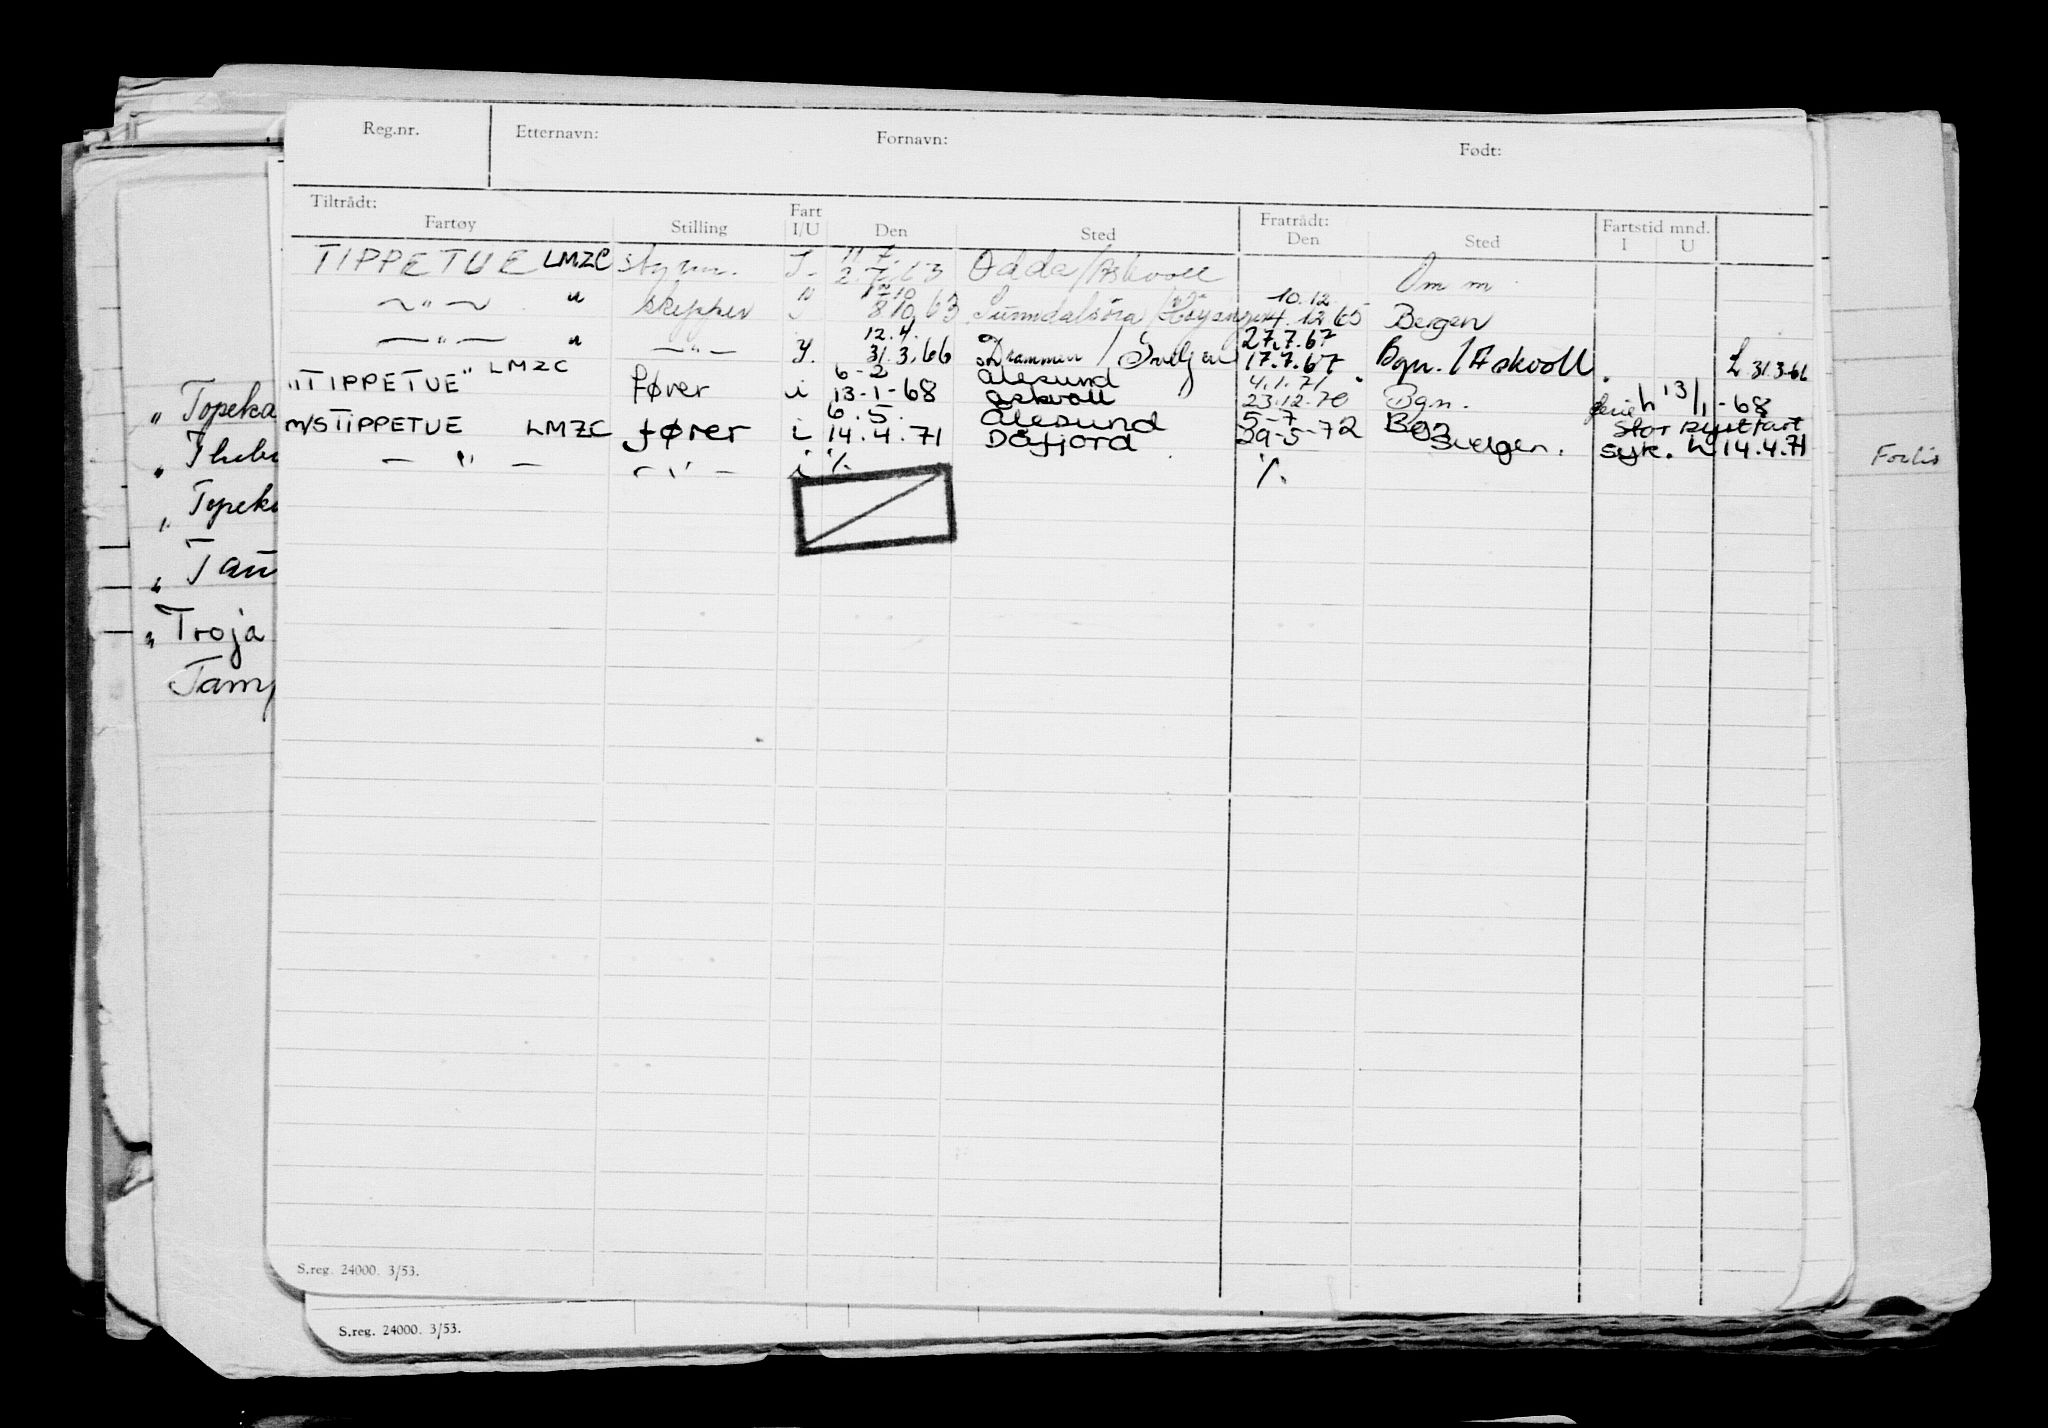 Reg.nr. Etternavn: Fornavn: Født:
Tiltrådt: Fratrådt:
Fartøy Stilling Fart I/U Den Sted Den Sted Fartstid mnd. I U
11.7.
TIPPETUE LMZC styrm. I. 2.7.63 Odda/Askvoll Om m
10.12.
— " — " skipper I 8.10.63 Sunndalsöra / Höyanger 4.12.65 Bergen
12.4. 27.7.67
— " — " — " — I. 31.3.66 Drammen / Svelgen 17.7.67 Bgn. / Askvoll. L 31.3.66
6-2 Ålesund 4.1.71
"TIPPETUE" LMZC fører i 13-1-68 Askvoll 23.12.70 Bgn. ferie h 13/1-68
6.5. Ålesund 5-7 Bgn Stor kystfart
M/S TIPPETUE LMZC fører i 14.4.71 Dåfjord 29-5-72 Bergen. syk. h 14.4.71
— " — — " — i ٪ ٪
" Topeka
"
" Topeka
"
" Troja
S.reg. 24000. 3/53.
S.reg. 24000. 3/53.